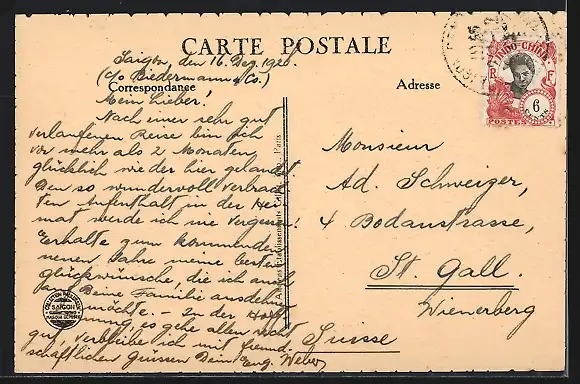 CARTE POSTALE
Correspondance
Adresse
Saigon, den 16. Dez. 1920.
(c/o Biedermann & Co.)
Mein Lieber!
Nach einer sehr gut
verlaufenen Reise bin ich
vor mehr als 2 Monaten
glücklich wieder hier gelandet.
Den so wundervoll verbrach-
ten Aufenthalt in der Hei-
mat werde ich nie vergessen!
Erhalte zum kommenden
neuen Jahre meine besten
Glückwünsche, die ich auch
auf Deine Familie ausdehnen
möchte. – In der Hoff-
nung, es gehe allen recht
gut, verbleibe ich mit freund-
schaftlichen Grüssen Dein Eug. Weber
Monsieur
Ad. Schweizer,
4 Bodanstrasse,
St. Gall.
Wienerberg
Suisse
INDO-CHINE
R F
6
CENTS
POSTES
SAIGON